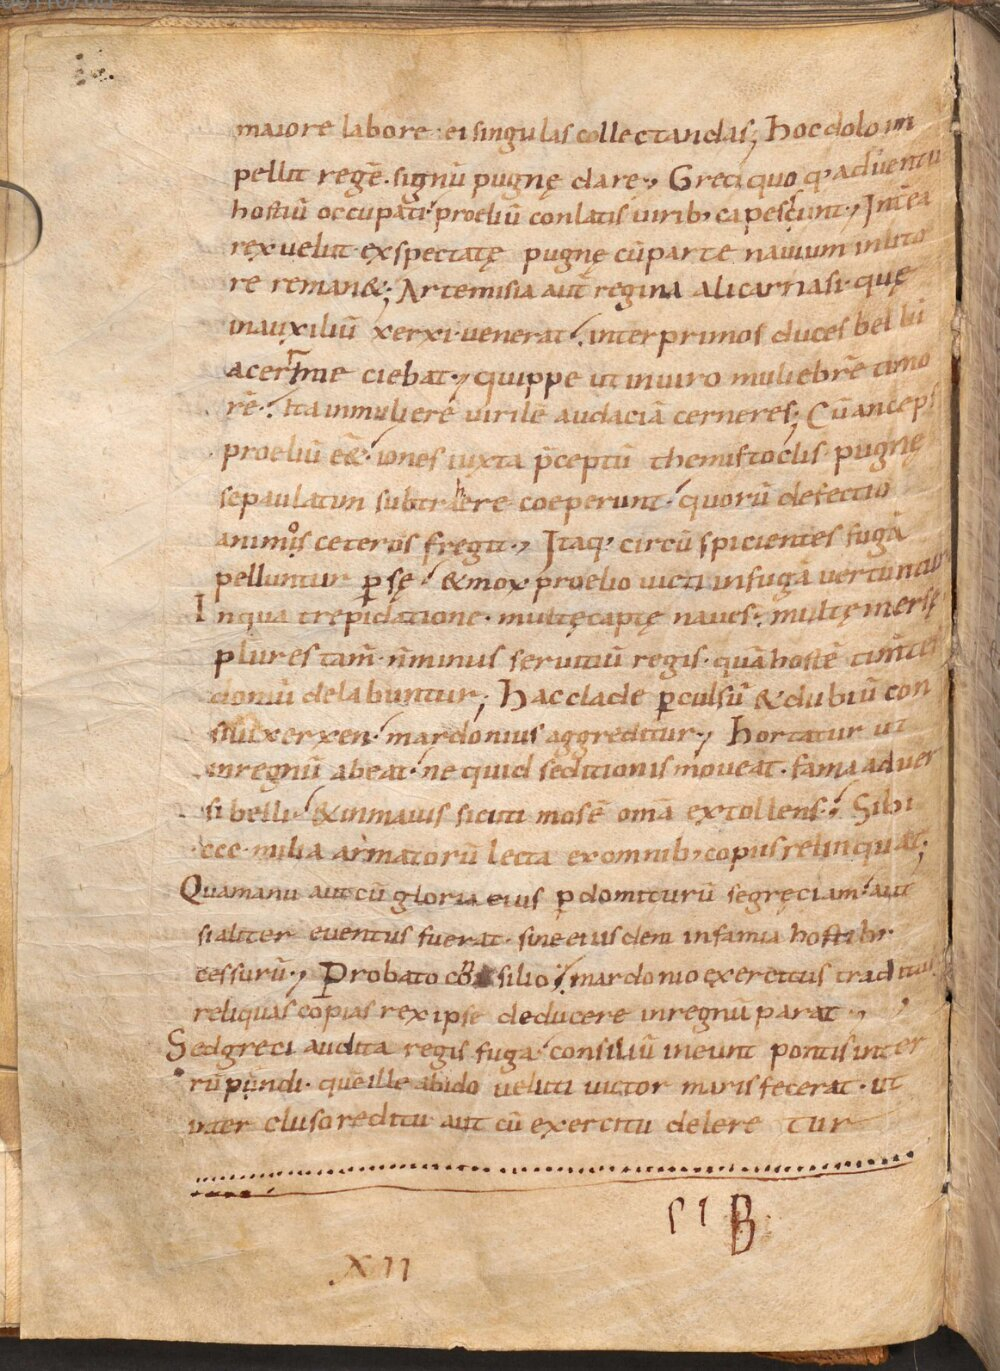 maiore labore · ei singulas collectandas; hoc dolo im
pellit regē · signū pugnę dare ·, Greci quoq, aduentu
hostiū occupati · proeliū conlatis uirib, capescunt ·, Interea
rex uelut exspectatę pugnę cū parte nauium in lito
re reman&; Artemisia aut̄ regina alicarnasi · quę
in auxiliū xerxi · uenerat · inter primos duces bellū
acerrime ciebat ·, quippe ut in uiro muliebrē timo
rē · Ita in muliere virilē audaciā cerneres; Cū anceps
proeliū eēt · iones iuxta p̄ceptū themistoclis pugnę
se paulatim subtrahere coeperunt · quorū defectio
animos ceteros fregit ·, Itaq, circūspicientes fugā
pelluntur p̲sę · & mox proelio uicti in fugā vertuntur
In qua trepidatione · multę captę naues · multę mersę
plures tam̄ · n̄ minus seruitiū regis · quā hostē timentes
domū delabuntur; Hac clade p̲culsū & dubiū con
silii xerxen · mardonius aggreditur ·, Hortatur ut
in regnū abeat · ne quid seditionis moueat · fama aduer
si belli · & in maius sicuti mos ē om̄a extollens · Sibi
·ccc· milia armatorū lecta ex omnib, copiis relinquat;
Qua manu aut cū gloria eius p̲domiturū se gręciam · aut
si aliter euentus fuerat · sine eiusdem infamia hostibr
cessurū ·, Probato cōsilio · mardonio exercitus traditur
reliquas copias rex ipse deducere in regnū parat ·,
Sed greci audita regis fuga · consiliū ineunt pontis inter
rūpundi · quē ille abido veluti uictor maris fecerat · ut
inter cluso reditu aut cū exercitu deleretur
XII